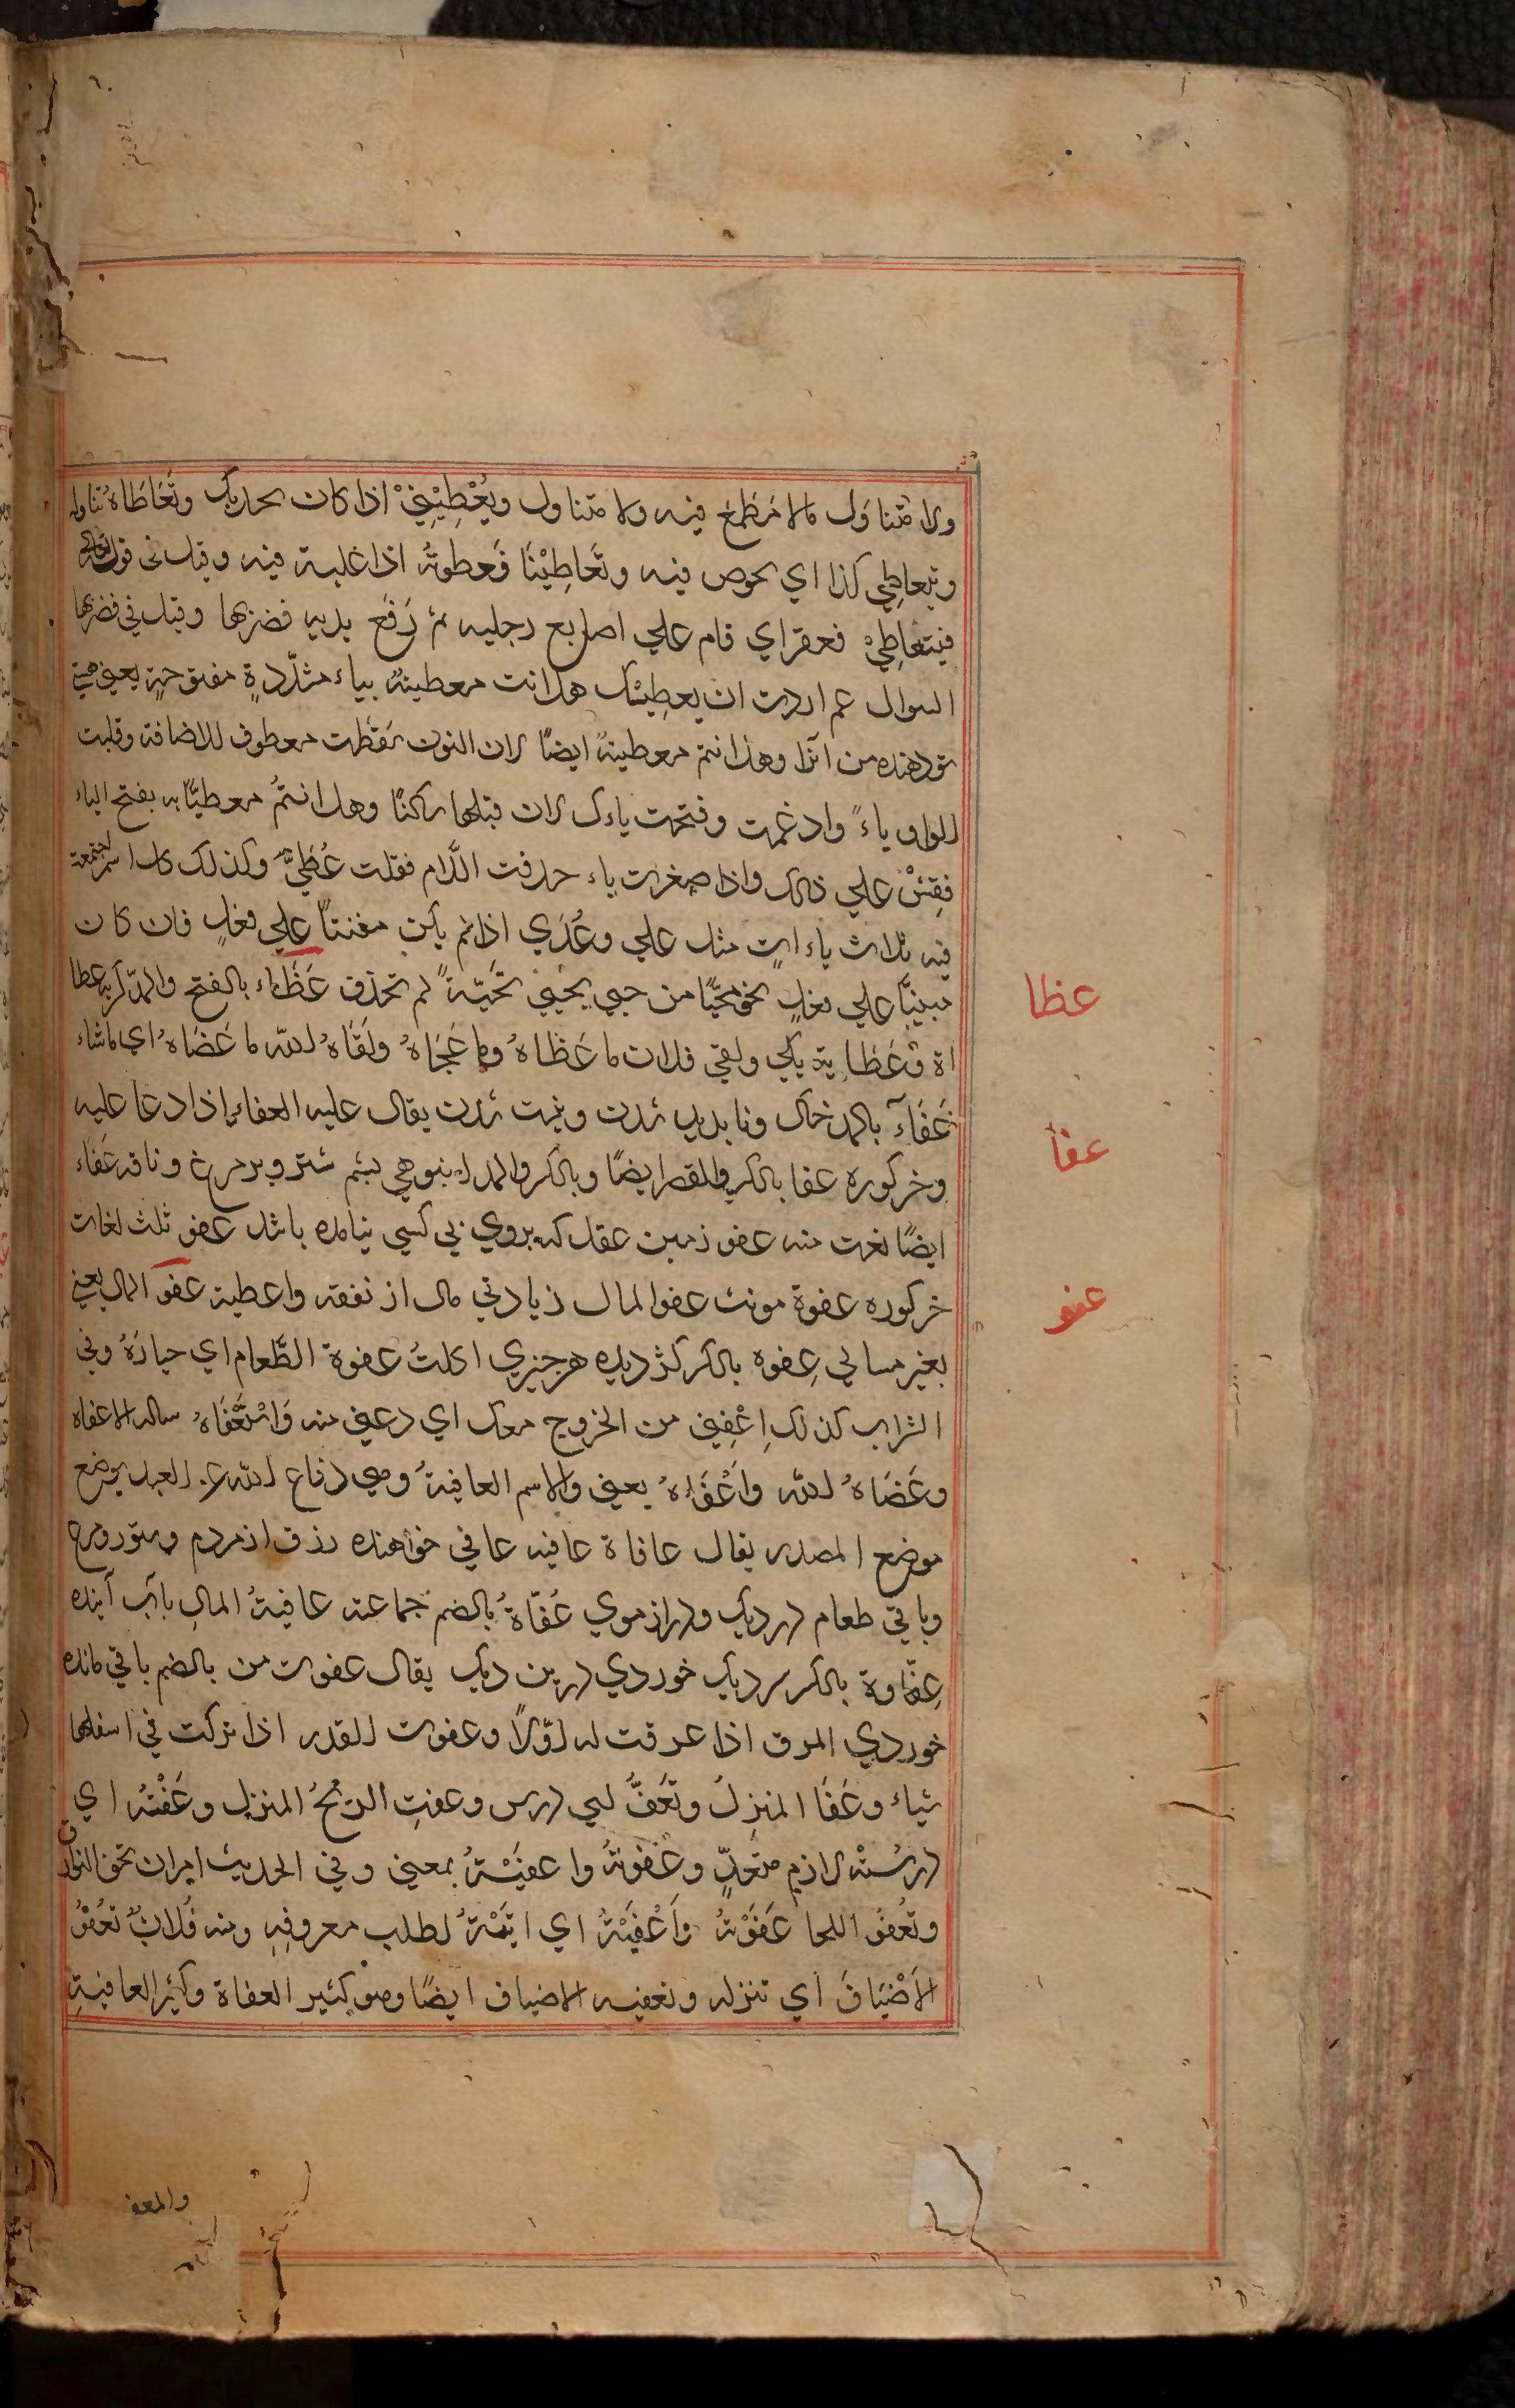 ولا متناول مالا مطمع فيه ولا متناول ويُعْطِيْنِيْ اذا كان بحذيك وتَعَاطَاهُ تناوله
وتعاطي كذا اي يخوض فيه وتَعَاطَيْنَا فَعطوتُهُ اذا غلبته فيه وقيل في قوله تعالي
فتعاطي فعقر اي قام علي اصابع رجليه ثم رَفَع يديه فضربها وقيل في فضربها
السوال عم اردت ان يعطيك هل انت معطيّهُ بياء مشدّدةٍ مفتوحةٍ يعني هي
تو دهنده من آنرا وهل انتم معطيهُ ايضًا لان النون سَقَطت معطوف للاضافة وقلبت
الواو ياءً وادغمت وفتحت ياءك لان قبلها ساكنًا وهل انتمُ معطيّا به بفتح الياء
فقِسْ علي ذلك واذا صغرت ياء حذفت اللّام فقلت عُطَيٌّ وكذلك كل اسم اجتمعت
فيه ثلاث ياءاتٍ مثل علي وعُدَيّ اذا لم يكن مبنيًا علي فعلٍ فان كان
مبنيًّا علي فعلٍ نحو محيًّا من حيي يحيي تَحيّةً لم تحذف عَظَاء بالفتح والمد كربه عظا
اة وعَظَا ية يكي ولقي فلان ما عَظَاهُ وما عَجَاهُ ولَقّاهُ الله ما عَظَاهُ اي ما شاء
عَفَآء بالمد خاك ونا پديد شدن ونيست شدن يقال عليه العفاء اذا دعا عليه
وخر كوره عفا بالكسر والقصر ايضًا وبالكسر والمد انبوهي پشم شتر وپر مرغ وناقه عَفاء
ايضًا نعت منه عفو زمين عقل كه بروي پي كسي نيامده باشد عفو ثلث لغات
خر كوره عفوة مونث عفو المال زيادتي مال از نفقه واعطيته عفو المال يعني
بغير مسالي عِفوه بالكسر كزديده هر چيزي اكلتُ عفوة الطّعام اي خيارَهُ وفي
الشراب كذلك اِعْفِني من الخروج معك اي دعني منه وَاسْتَعْفَاهُ ساله الاعفاء
وعَفَاهُ الله وَاَعْفَاهُ يعني والاسم العافيةُ وهي دفاع الله عن العبد يوضع
موضع المصدر يقال عافاة عافيه عافي خواهنده رزق از مردم وستور ومرغ
وباقي طعام در ديك ودراز موي عُفّاةُ بالضم جماعته عافيةُ المال باب آينده
عِفَاوة بالكسر سر ديك خوردي در بن ديك يقال عفوت من بالضم باقي مانده
خوردي المرق اذا غرقت له اوّلًا وعفوت القدر اذا تركت في اسفلها
شياء وعَفَا المنزلُ وتَعَفَّ لي درس وعفتِ الرّيحُ المنزل وعَفْتُه اي
دَرسْته لازم متعدٍّ وعَفوتهُ واعفيْتهُ بمعني وفي الحديث امر ان تحفي الشوارب
وتُعفُو اللحا عَفَوْتهُ وَاَعْفَيْتهُ اي اتيتهُ لطلب معروفِهِ ومنه فُلانٌ تعْفوُ
الاَضْيَافَ اي تنزله وتعفيه الاضياف ايضًا وهو كثير العفاة وكثير العافية
عظا
عفا
عفو
والمعفـ